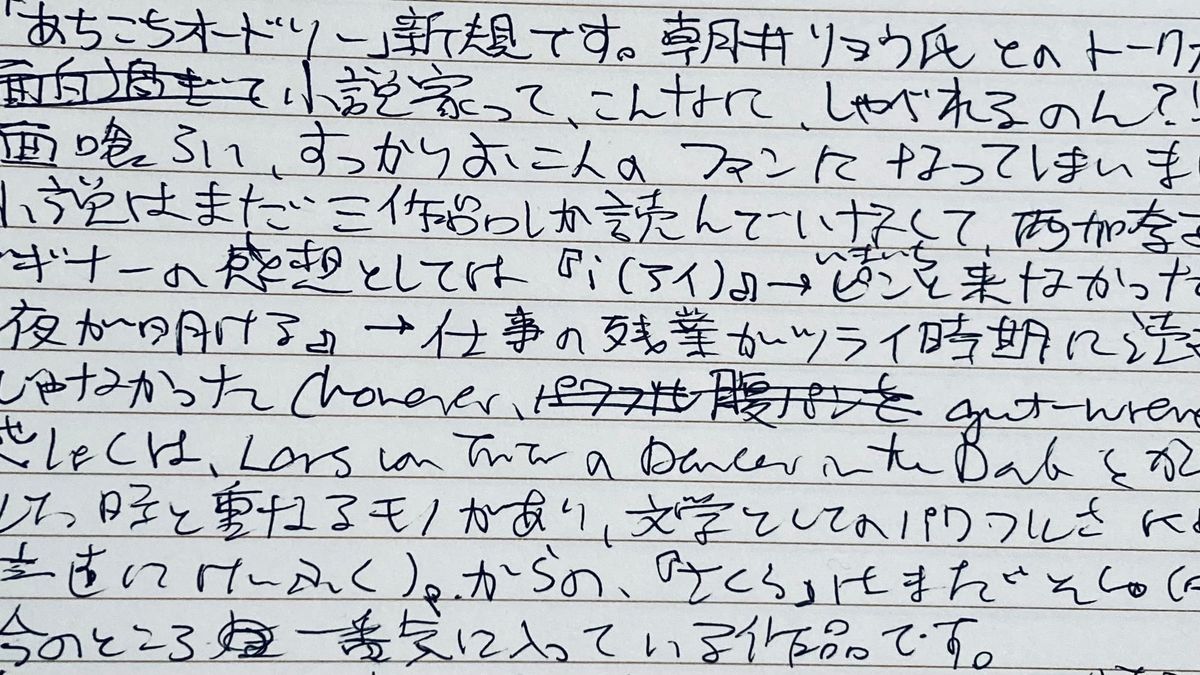 「あちこちオードリー」新規です。朝井リョウ氏とのトーク
面白過ぎて小説家って、こんなに、しゃべれるのん？！
面喰らい、すっかりお二人のファンになってしまいまし
小説はまだ三作品しか読んでいなくて、西加奈子
ギナーの感想としては『i(アイ)』→いまいちピンと来なかった
夜が明ける』→仕事の残業がツライ時期に読
じゃなかった (however、パワフルな腹パンを gut-wren
もしくは、Lars von Trier の Dancer in the Dark を
した時と重ねるモノがあり、文学としてのパワフルさには
直にけいふく)。からの、『さくら』はまだ
今のところ一番気に入っている作品です。